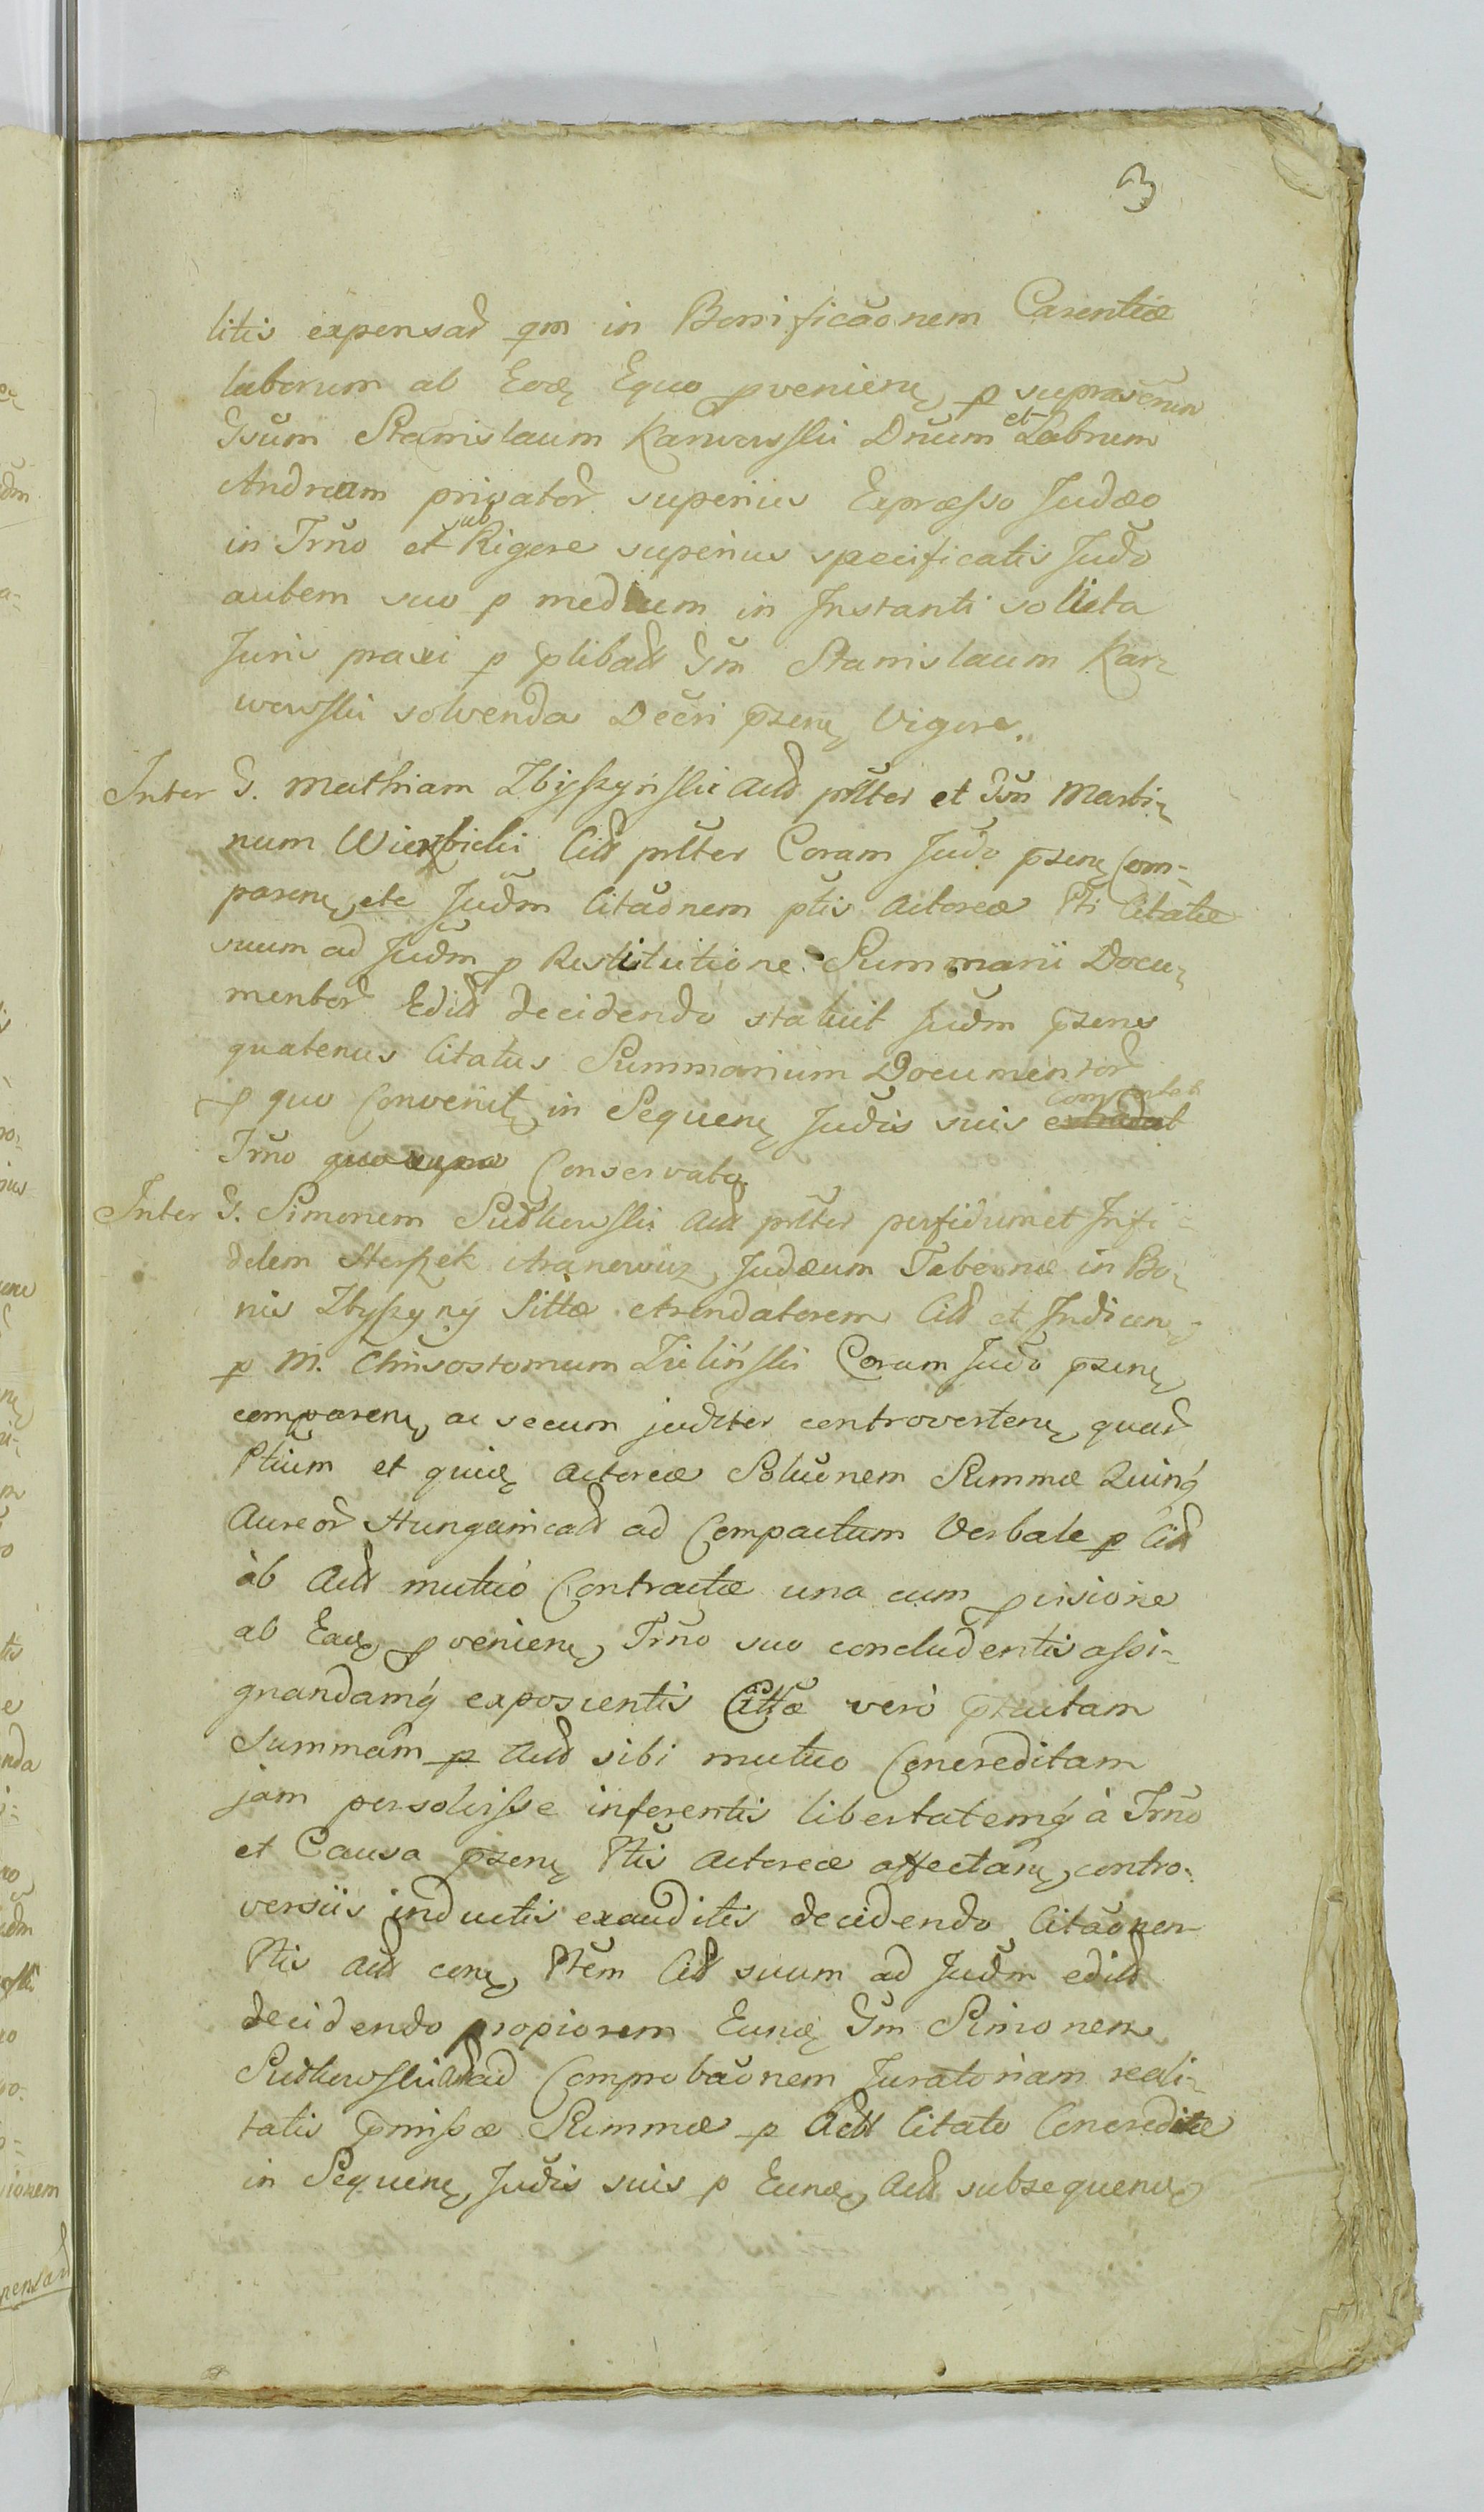 3
litis expensad qm in Bonificãonem Carentiæ
laborum ab Eodę Equo pvenienę, p supraserium
Gsum Stanislaum Karwowski Dnum et Labrum
Andream privator superius Expræsso Judæo
in Trno et sub Rigore superius specificatis Judo
autem suo p medium in Instanti solita
Juris praxi p plibatt Gm Stanislaum Kar-
wowski solvenda Decri przenę Vigore.
Inter G. Mathiam Zbyszyński Actt prlter et Gsn Marti-
num Wierzbicki Citt prlter Coram Judo przenę Com-
parenę, etc Judm Citaonem ptis Actoreæ Pti Citatæ
suum ad Judm p Restitutione Summarii Docu-
mentor Editt decidendo statuit Judm przens
quatenus Citatus Summarium Documentor
p quo Convenitę in Sequenę Judis suis extradat comportet
Trno quo supra Conservato.
Inter G. Simonem Sutkowski Actt prlter perfidum et Infi-
delem Herszek Aranowicz, Judæum Tabernæ in Bo-
nis Zbyszyny Sittæ Arendatorem Citt et Indicenę
p M. Chrisostomum Zieliński Coram Judo przenę
comparenę, ac secum judlter controvertenę, quar
Ptium et quię Actoreæ Soluonem Summæ Quinq
Aureor Hungaricatt ad Compactum Verbale p Citt
ab Actt mutuo Contractæ una cum pvisione
ab Eadę, pvenienę, Trno suo concludentis assi-
gnandamq exposcentis Cittæ vero prtactam
Summam p Actt sibi mutuo Concreditam
jam persolvisse inferentis libertatemq à Trno
et Causa przenę Ptis Actoreæ affectanę, contro-
versiis inductis exauditis decidendo Citaonen
Ptis Actt conę, Ptem Citt suum ad Judm editt
decidendo propiorem Eundę Gm Simonem
Sutkowski Actt ad Comprobaonem Juratoriam reali-
tatis pmissæ Summæ p Actt Citato Concreditæ
in Sequenę, Judis suis p Eundę, Actt subsequenę